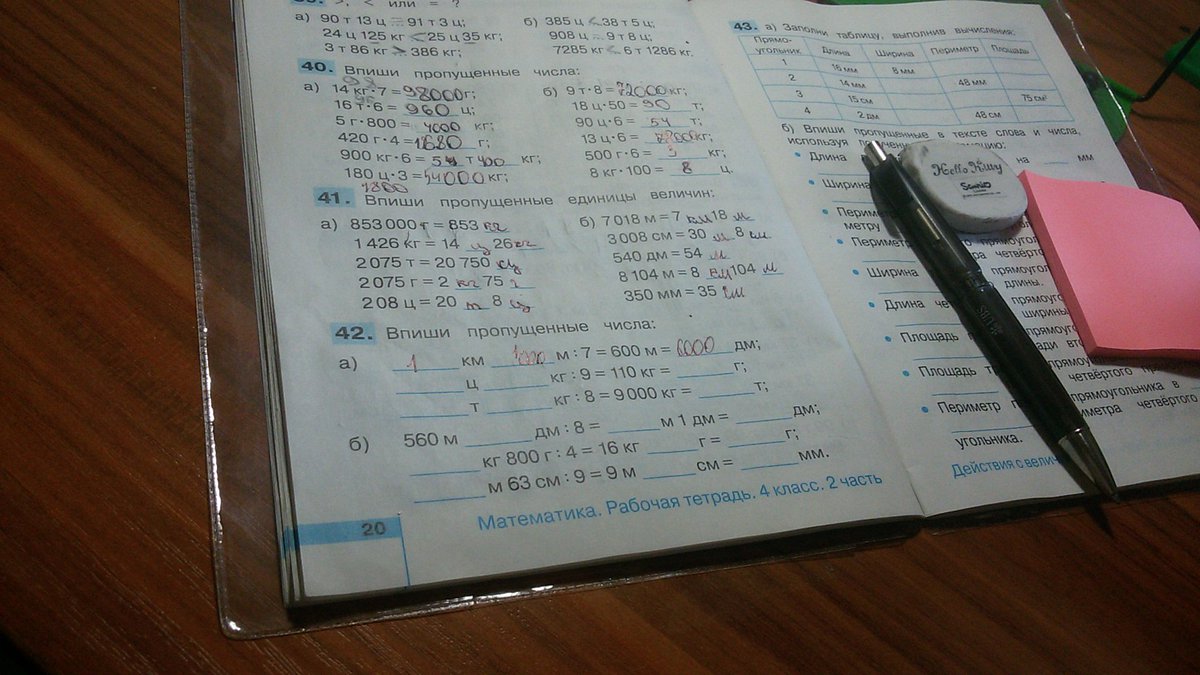 >, < или = ?
а) 90 т 13 ц = 91 т 3 ц;
24 ц 125 кг < 25 ц 35 кг;
3 т 86 кг > 386 кг;
б) 385 ц < 38 т 5 ц;
908 ц 9 т 8 ц;
7285 кг < 6 т 1286 кг.
40. Впиши пропущенные числа:
а) 14 кг · 7 = 98000 г;
16 т · 6 = 960 ц;
5 г · 800 = 4000 кг;
420 г · 4 = 1680 г;
900 кг · 6 = 54 т 400 кг;
180 ц · 3 = 54000 кг;
б) 9 т · 8 = 72000 кг;
18 ц · 50 = 90 т;
90 ц · 6 = 54 т;
13 ц · 6 = кг;
500 г · 6 = 3 кг;
8 кг · 100 = 8 ц.
41. Впиши пропущенные единицы величин:
а) 853 000 г = 853 кг
1 426 кг = 14 ц 26 кг
2 075 т = 20 750 ц
2 075 г = 2 кг 75 г
208 ц = 20 т 8 ц
б) 7 018 м = 7 км 18 м
3 008 см = 30 м 8 см
540 дм = 54 м
8 104 м = 8 км 104 м
350 мм = 35 см
42. Впиши пропущенные числа:
а) 1 км м : 7 = 600 м = 6000 дм;
ц кг : 9 = 110 кг = г;
т кг : 8 = 9 000 кг = т;
б) 560 м дм : 8 = м 1 дм = дм;
кг 800 г : 4 = 16 кг г = г;
м 63 см : 9 = 9 м см = мм.
Математика. Рабочая тетрадь. 4 класс. 2 часть
20
43. а) Заполни таблицу, выполнив вычисления:
Прямоугольник Длина Ширина Периметр Площадь
1 16 мм 8 мм
2 14 мм 48 мм
3 15 см 75 см²
4 2 дм 48 см
б) Впиши пропущенные в тексте слова и числа,
используя
Длина на мм
Ширина
Периметр
метру
Периметр
Ширина прямоугольника
длины.
Длина
ширины
Площадь
Площадь четвёртого
Периметр прямоугольника в
четвёртого
угольника.
Действия с
Hello Kitty
Sanrio